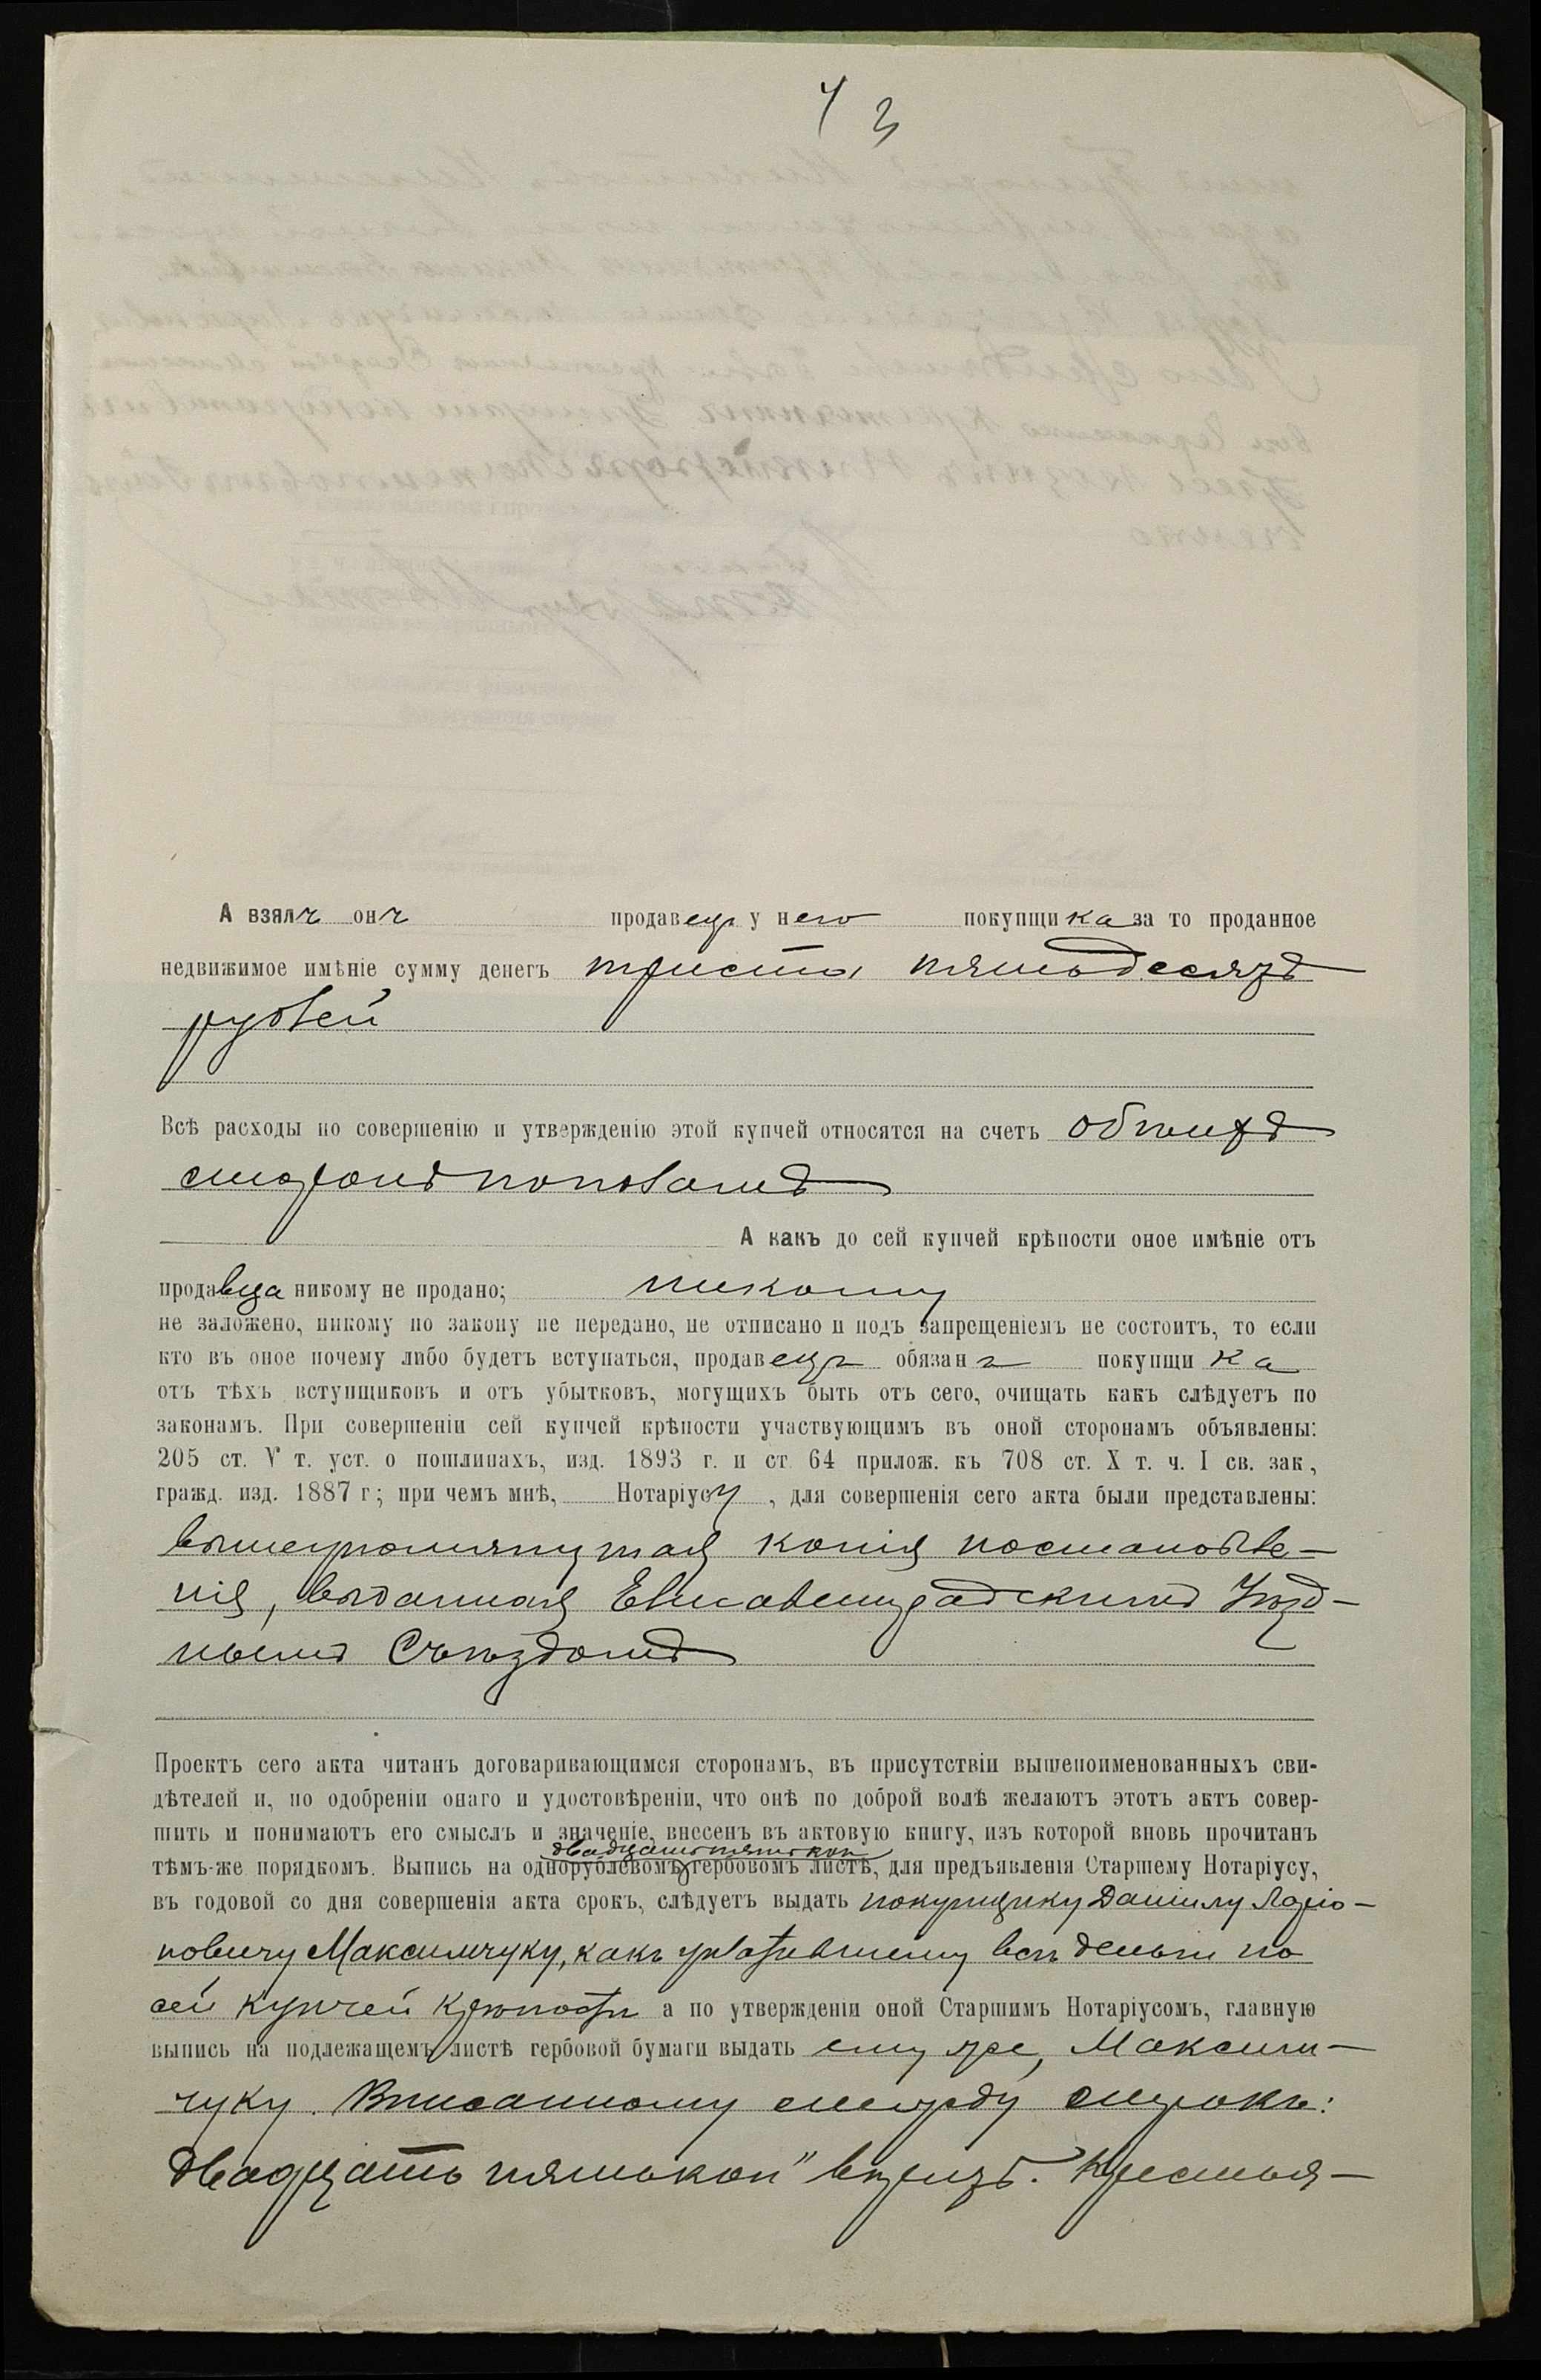 43
А взялъ онъ продавецъ у него покупщика за то проданное
недвижимое имѣніе сумму денегъ триста пятьдесятъ
рублей
Всѣ расходы по совершенію и утвержденію этой купчей относятся на счетъ обоихъ
сторонъ пополамъ
А какъ до сей купчей крѣпости оное имѣніе отъ
продавца никому не продано; никому
не заложено, никому по закону не передано, не отписано и подъ запрещеніемъ не состоитъ, то если
кто въ оное почему либо будетъ вступаться, продавецъ обязанъ покупщика
отъ тѣхъ вступщиковъ и отъ убытковъ, могущихъ быть отъ сего, очищать какъ слѣдуетъ по
законамъ. При совершеніи сей купчей крѣпости участвующимъ въ оной сторонамъ объявлены:
205 ст. V т. уст. о пошлинахъ, изд. 1893 г. и ст. 64 прилож. къ 708 ст. X т. ч. I св. зак,
гражд. изд. 1887 г; при чемъ мнѣ, Нотаріусу, для совершенія сего акта были представлены:
вышеупомянутая копія постановле-
нія, выданная Елисаветградскимъ Уѣзд-
нымъ Съѣздомъ
Проектъ сего акта читанъ договаривающимся сторонамъ, въ присутствіи вышепоименованныхъ сви-
дѣтелей и, по одобреніи онаго и удостовѣреніи, что онѣ по доброй волѣ желаютъ этотъ актъ совер-
шить и понимаютъ его смыслъ и значеніе, внесенъ въ актовую книгу, изъ которой вновь прочитанъ
двадцать пять коп
тѣмъ-же порядкомъ. Выпись на однорублевомъ гербовомъ листѣ, для предъявленія Старшему Нотаріусу,
въ годовой со дня совершенія акта срокъ, слѣдуетъ выдать покупщику Даніилу Ларіо-
новичу Максимчуку, какъ уплатившему всѣ деньги по
сей купчей крѣпости а по утвержденіи оной Старшимъ Нотаріусомъ, главную
выпись на подлежащемъ листѣ гербовой бумаги выдать ему же, Максим-
чуку. Вписанному между строкъ:
двадцать пять коп" вѣрить. Крестья-